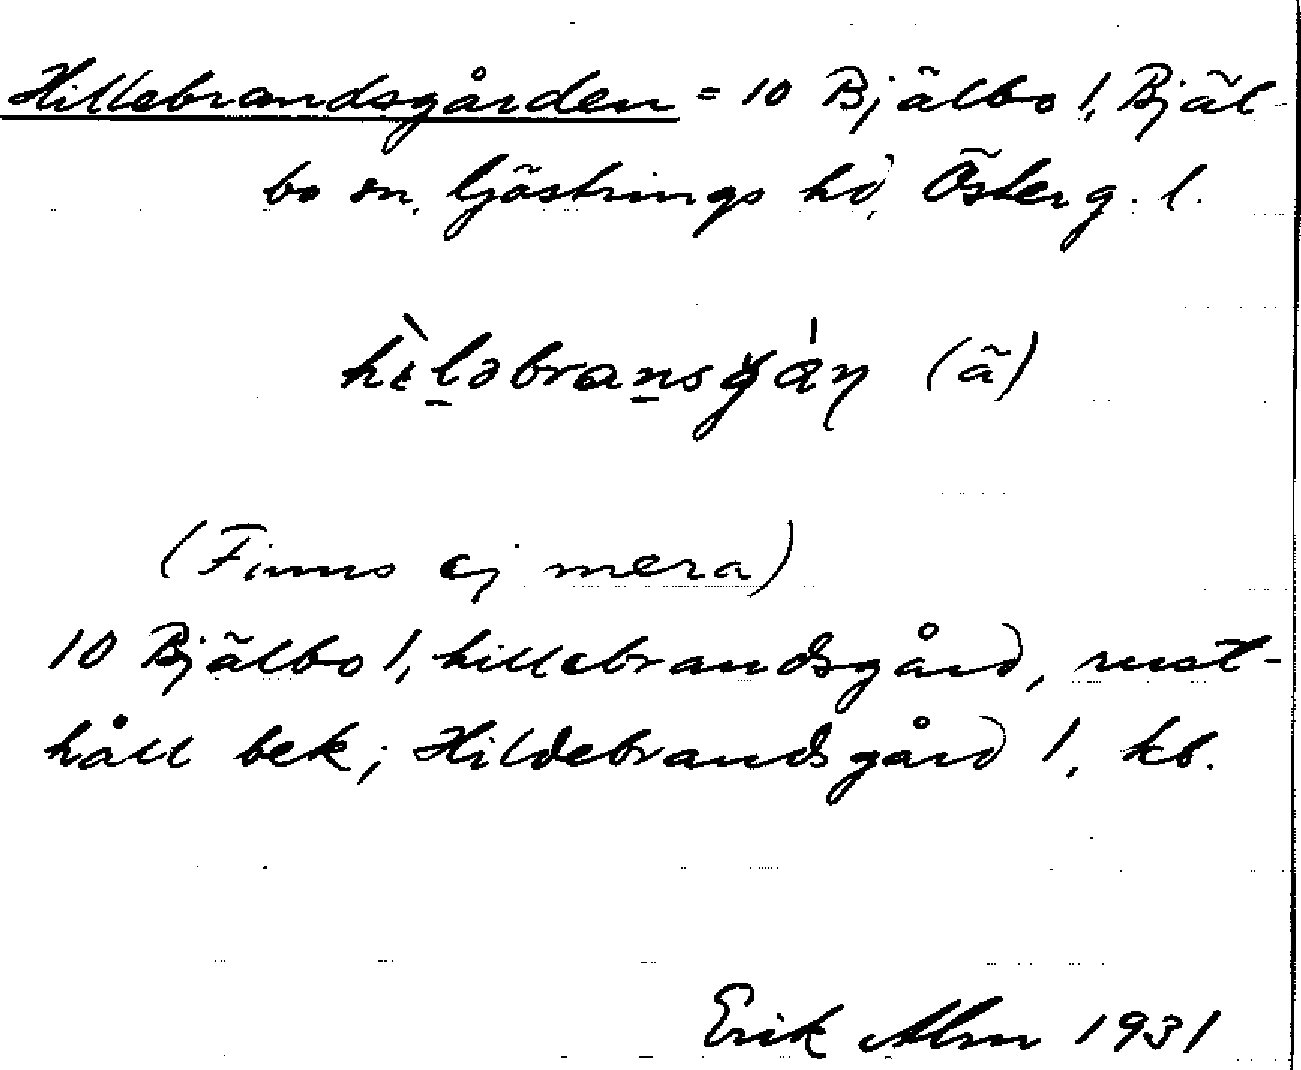 Hillebrandsgården = 10 Bjälbo 1, Bjäl-
bo sn, Göstrings hd, Österg. l.
hìləbransgán (ã)
(Finns ej mera)
10 Bjälbo 1, hillebrandsgård, rust-
håll bek; Hildebrandsgård 1, kb.
Erik Alm 1931